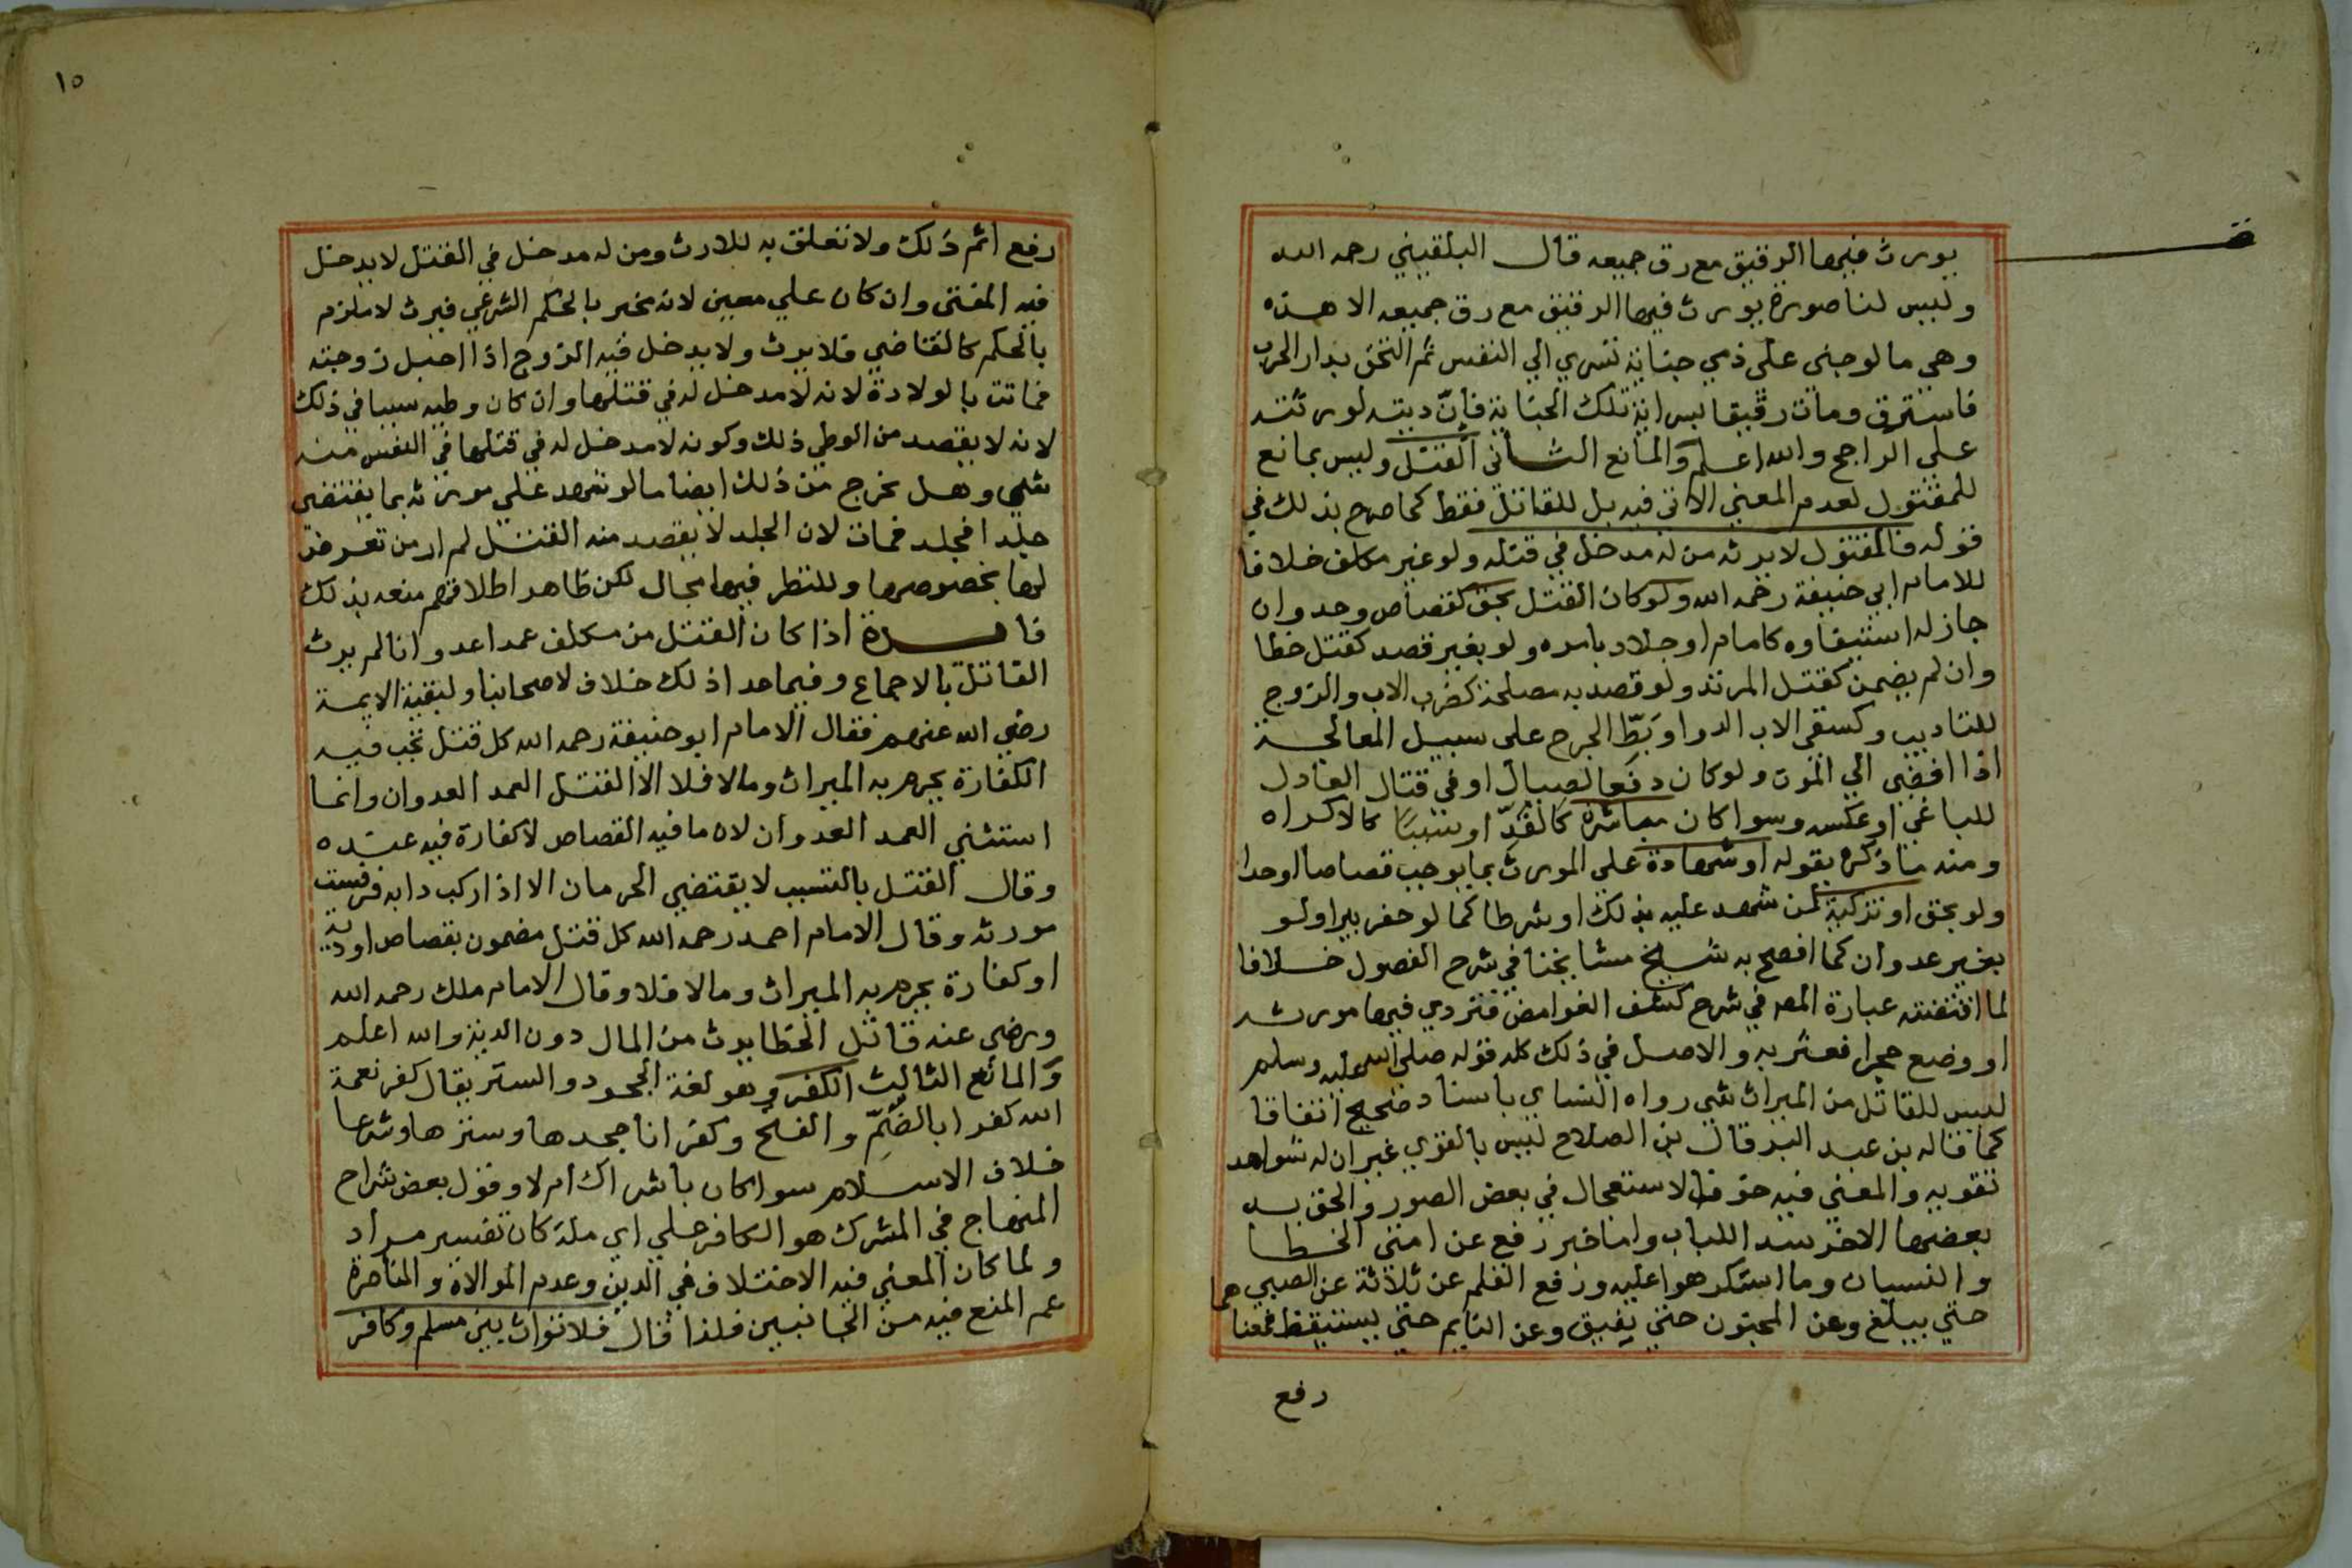 يورث فيها الرقيق مع رق جميعه قال البلقيني رحمه الله
وليس لنا صورة يورث فيها الرقيق مع رق جميعه الا هذه
وهي ما لو جنى على ذمي جناية تسري الي النفس ثم التحق بدار الحرب
فاسترق ومات رقيقا بسراية تلك الجناية فان ديته لورثته
على الراجح والله اعلم والمانع الثاني القتل وليس بمانع
للمقتول لعدم المعني الاتى فيه بل للقاتل فقط كما صرح بذلك في
قوله فالمقتول لا يرثه من له مدخل في قتله ولو غير مكلف خلافا
للامام ابي حنيفة رحمه الله ولو كان القتل بحق كقصاص وحد وان
جاز له استيفاوه كامام او جلاد بامره ولو بغير قصد كقتل خطا
وان لم يضمن كقتل المرتد ولو قصد به مصلحة كضرب الاب والزوج
للتاديب وكسقى الاب الدوا وبَطّ الجرح على سبيل المعالجة
اذا افضى الي الموت ولو كان دفعا لصيال او في قتال العادل
للباغي او عكسه وسوا كان مباشرة كالقدّ او سببا كالاكراه
ومنه ما ذكره بقوله او شهادة على المورث بما يوجب قصاصا او حدا
ولو بحق او تزكية لمن شهد عليه بذلك او شرطا كما لو حفر بيرا ولو
بغير عدوان كما افصح به شيخ مشايخنا في شرح الفصول خلافا
لما اقتضته عبارة المصـ في شرح كشف الغوامض فتردي فيها مورثه
او وضع حجرا فعثر به والاصل في ذلك كله قوله صلى الله عليه وسلم
ليس للقاتل من الميراث شي رواه النساي باسناد صحيح اتفاقا
كما قاله بن عبد البر قال بن الصلاح ليس بالقوي غير ان له شواهد
تقويه والمعني فيه خوف الاستعجال في بعض الصور والحق به
بعضها الاخر سدا للباب واما خبر رفع عن امتي الخطا
والنسيان وما استكرهوا عليه ورفع القلم عن ثلاثة عن الصبي
حتي يبلغ وعن المجنون حتي يفيق وعن النايم حتي يستيقظ فمعناهما
رفع
١٥
رفع اثم ذلك ولا تعلق به للارث ومن له مدخل في القتل لا يدخل
فيه المفتى وان كان علي معين لانه مخبر بالحكم الشرعي فيرث لا ملزم
بالحكم كالقاضي فلا يرث ولا يدخل فيه الزوج اذا احبل زوجته
فماتت بالولادة لانه لا مدخل له في قتلها وان كان وطيه سببا في ذلك
لانه لا يقصد من الوطي ذلك وكونه لا مدخل له في قتلها في النفس منه
شي وهل يخرج من ذلك ايضا ما لو شهد علي مورثه بما يقتضي
جلدا فجلد فمات لان الجلد لا يقصد منه القتل لم ار من تعرض
لها بخصوصها وللنظر فيها مجال لكن ظاهر اطلاقهم منعه بذلك
فايدة اذا كان القتل من مكلف عمدا عدوانا لم يرث
القاتل بالاجماع وفيما عدا ذلك خلاف لاصحابنا ولبقية الايمة
رضي الله عنهم فقال الامام ابو حنيفة رحمه الله كل قتل تجب فيه
الكفارة يحرم به الميراث وما لا فلا الا القتل العمد العدوان وانما
استثني العمد العدوان لان ما فيه القصاص لا كفارة فيه عنده
وقال القتل بالتسبب لا يقتضي الحرمان الا اذا ركب دابه فرفست
مورثه وقال الامام احمد رحمه الله كل قتل مضمون بقصاص او دية
او كفارة يحرم به الميراث وما لا فلا وقال الامام ملك رحمه الله
ورضى عنه قاتل الخطا يرث من المال دون الدية والله اعلم
والمانع الثالث الكفر وهو لغة الجحود والستر يقال كفر نعمة
الله كفرا بالضمّ والفتح وكفرانا جحدها وسترها وشرعا
خلاف الاسلام سوا كان باشراك ام لا وقول بعض شراح
المنهاج في المشرك هو الكافر علي اي ملة كان تفسير مراد
ولما كان المعني فيه الاختلاف في الدين وعدم الموالاة والمناصرة
عم المنع فيه من الجانبين فلذا قال فلا توارث بين مسلم وكافر